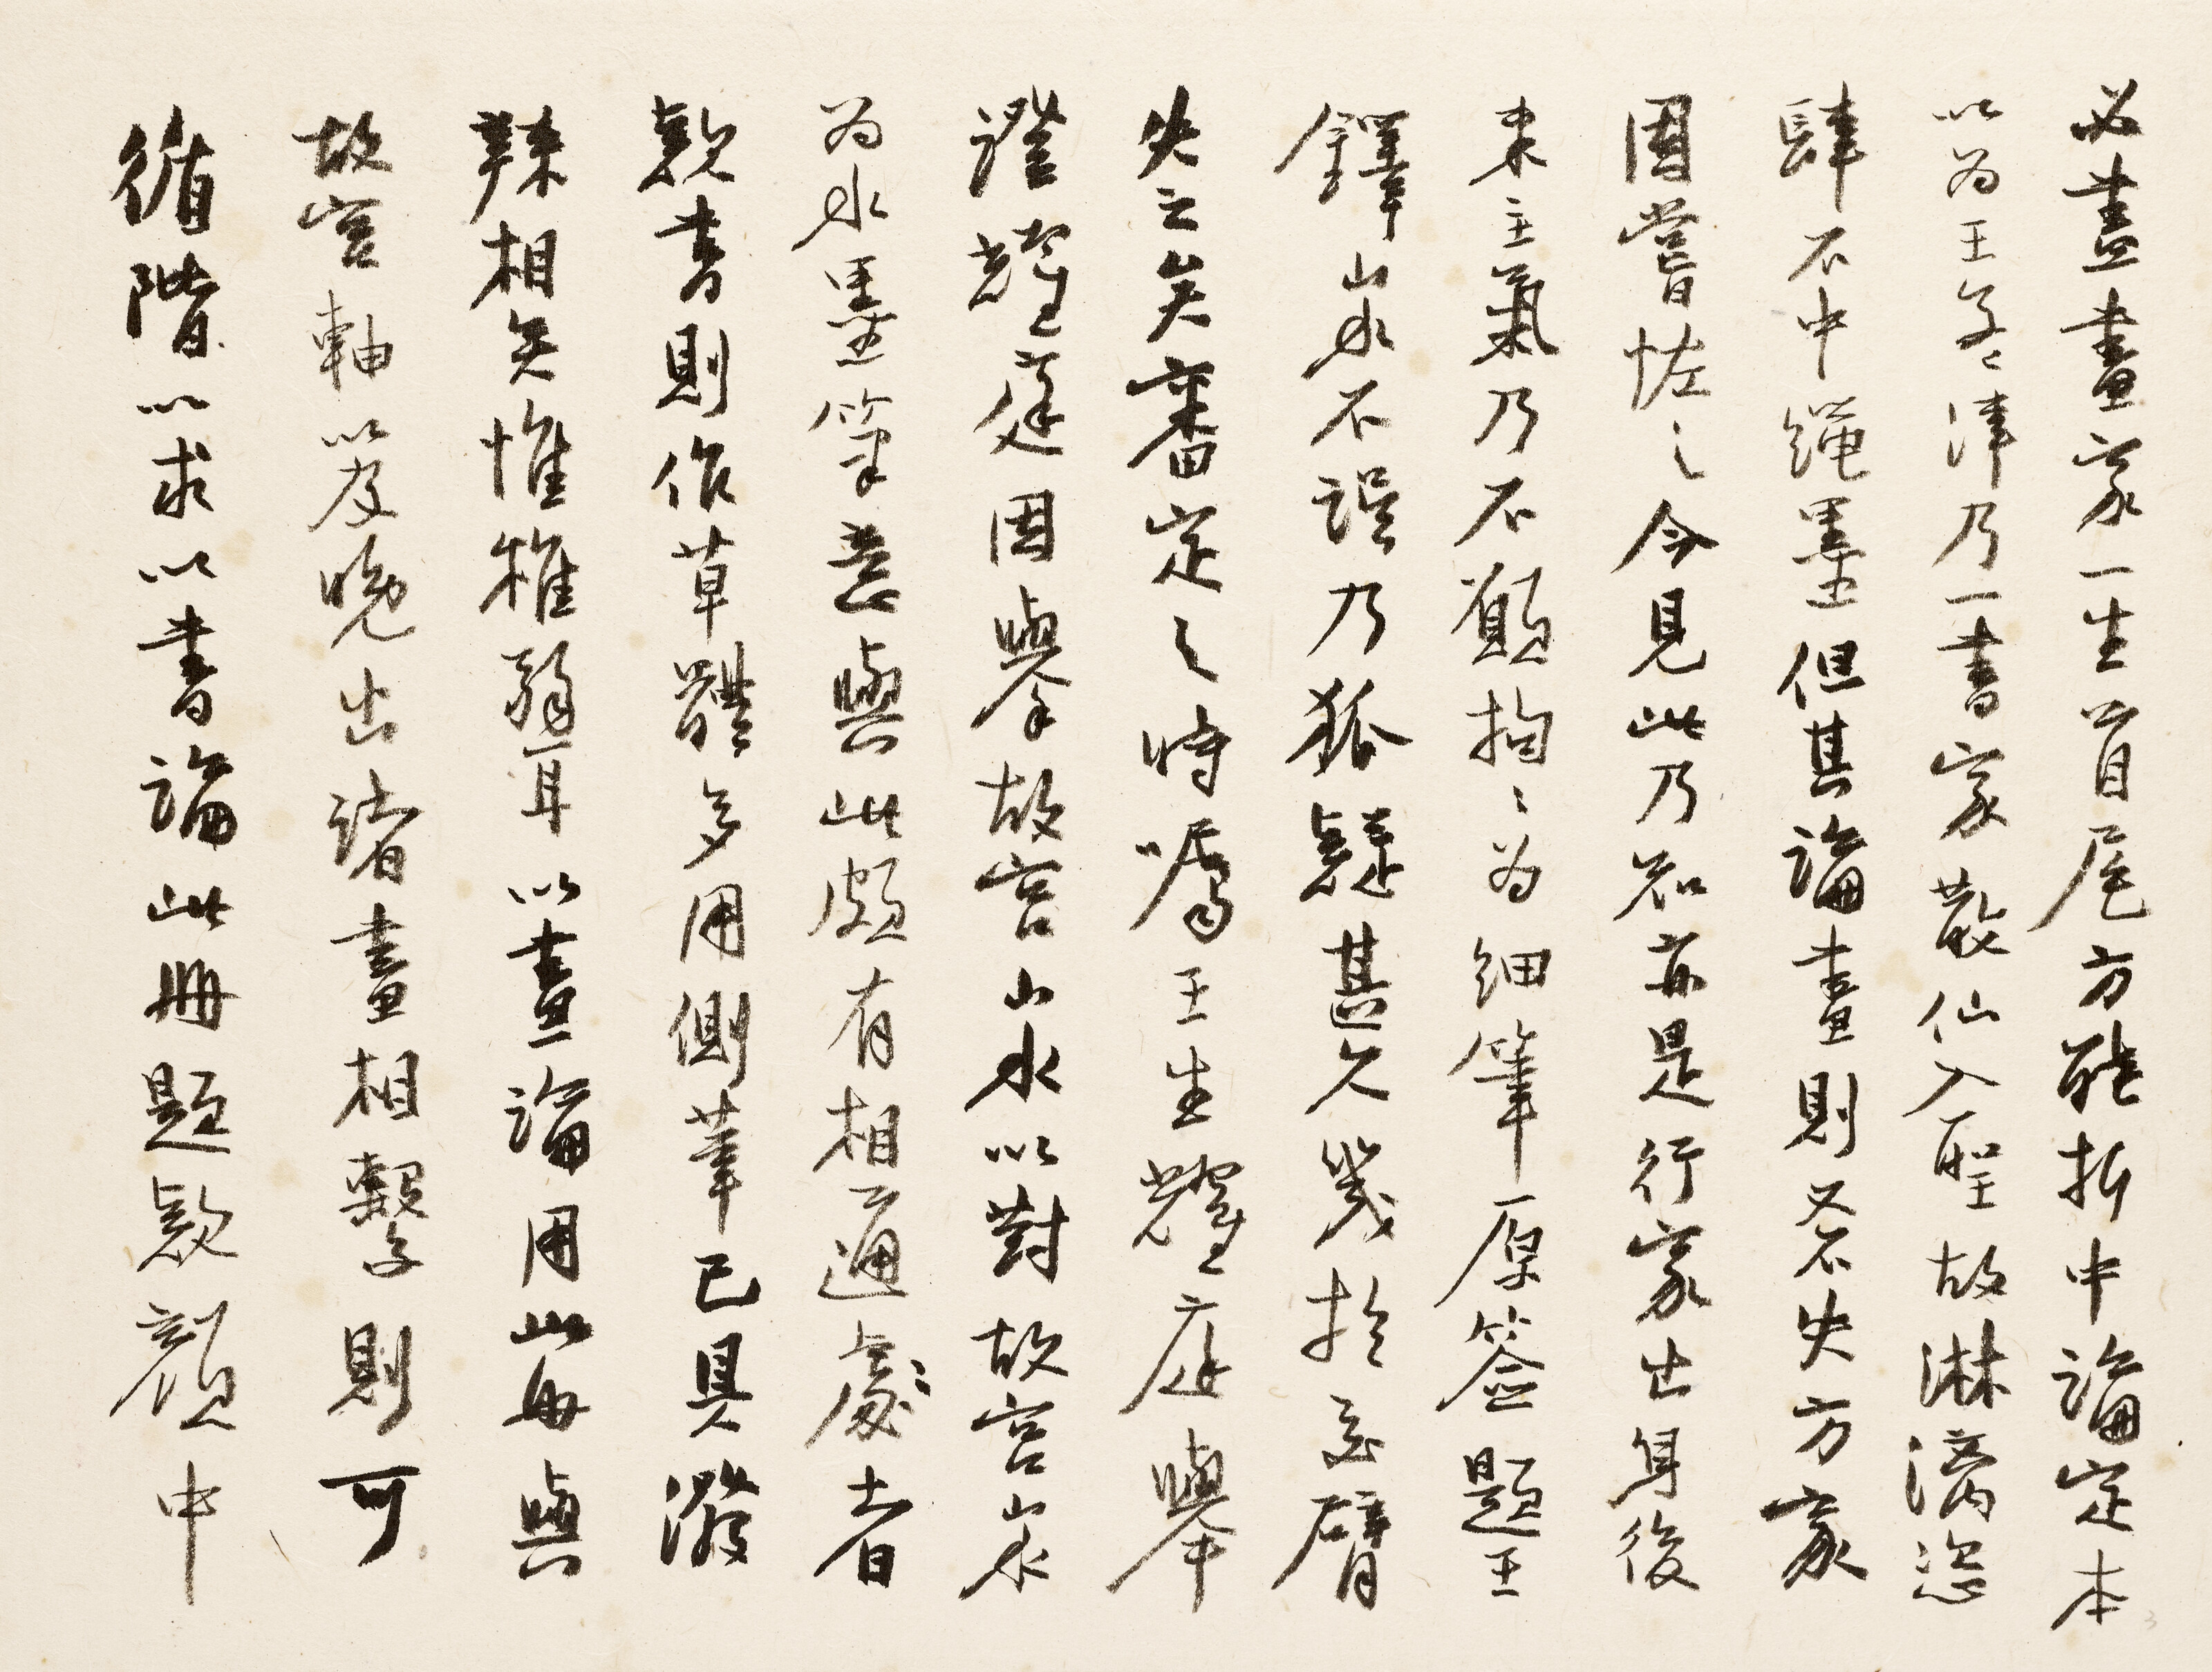 必盡畫家一生首尾方能折中論定本
以為王孟津乃一書家散仙入聖故淋漓恣
肆不中繩墨但其論畫則又不失方家
因嘗怪之今見此乃知亦是行家出身後
來主氣乃不願拘〻為細筆原簽題王
鐸山水不誤乃狐疑甚久幾於交臂
失之矣審定之時囑王生耀庭舉
證耀庭因舉故宮山水以對故宮山水
為水墨筆意與此頗有相通處〻者
款書則作草體多用側筆已具潑
辣相矣惟稚弱耳以畫論用此每與
故宮軸以及晚出諸畫相繫則可
循階以求以書論此冊題款顏中